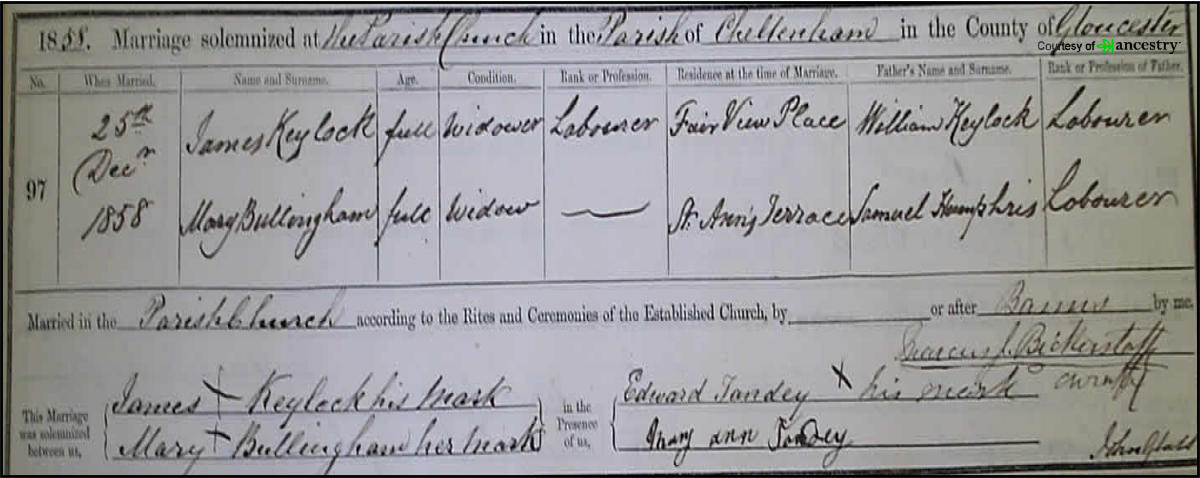 1858. Marriage solemnized at the Parish Church in the Parish of Cheltenham in the County of Gloucester
Courtesy of ancestry
No. When Married. Name and Surname. Age. Condition. Rank or Profession. Residence at the time of Marriage. Father's Name and Surname. Rank or Profession of Father.
97 25th Decr 1858 James Keylock full Widower Labourer Fair View Place William Keylock Labourer
Mary Bullingham full Widow St. Ann's Terrace Samuel Humphris Labourer
Married in the Parish Church according to the Rites and Ceremonies of the Established Church, by or after Banns by me,
Bickerstaff
This Marriage was solemnized between us, James X Keylock his mark in the Presence of us, Edward Tandey X his mark
Mary X Bullingham her mark Mary Ann Tandey
John